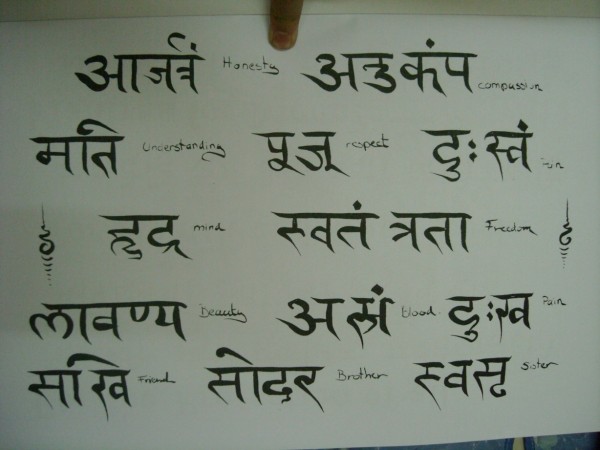 आर्जवं Honesty अनुकंप compassion
मति Understanding पूजृ respect दुःखं Pain
हृद mind स्वतंत्रता Freedom
लावण्य Beauty अस्रं blood दुःख Pain
सखि Friend सोदर Brother स्वसृ Sister